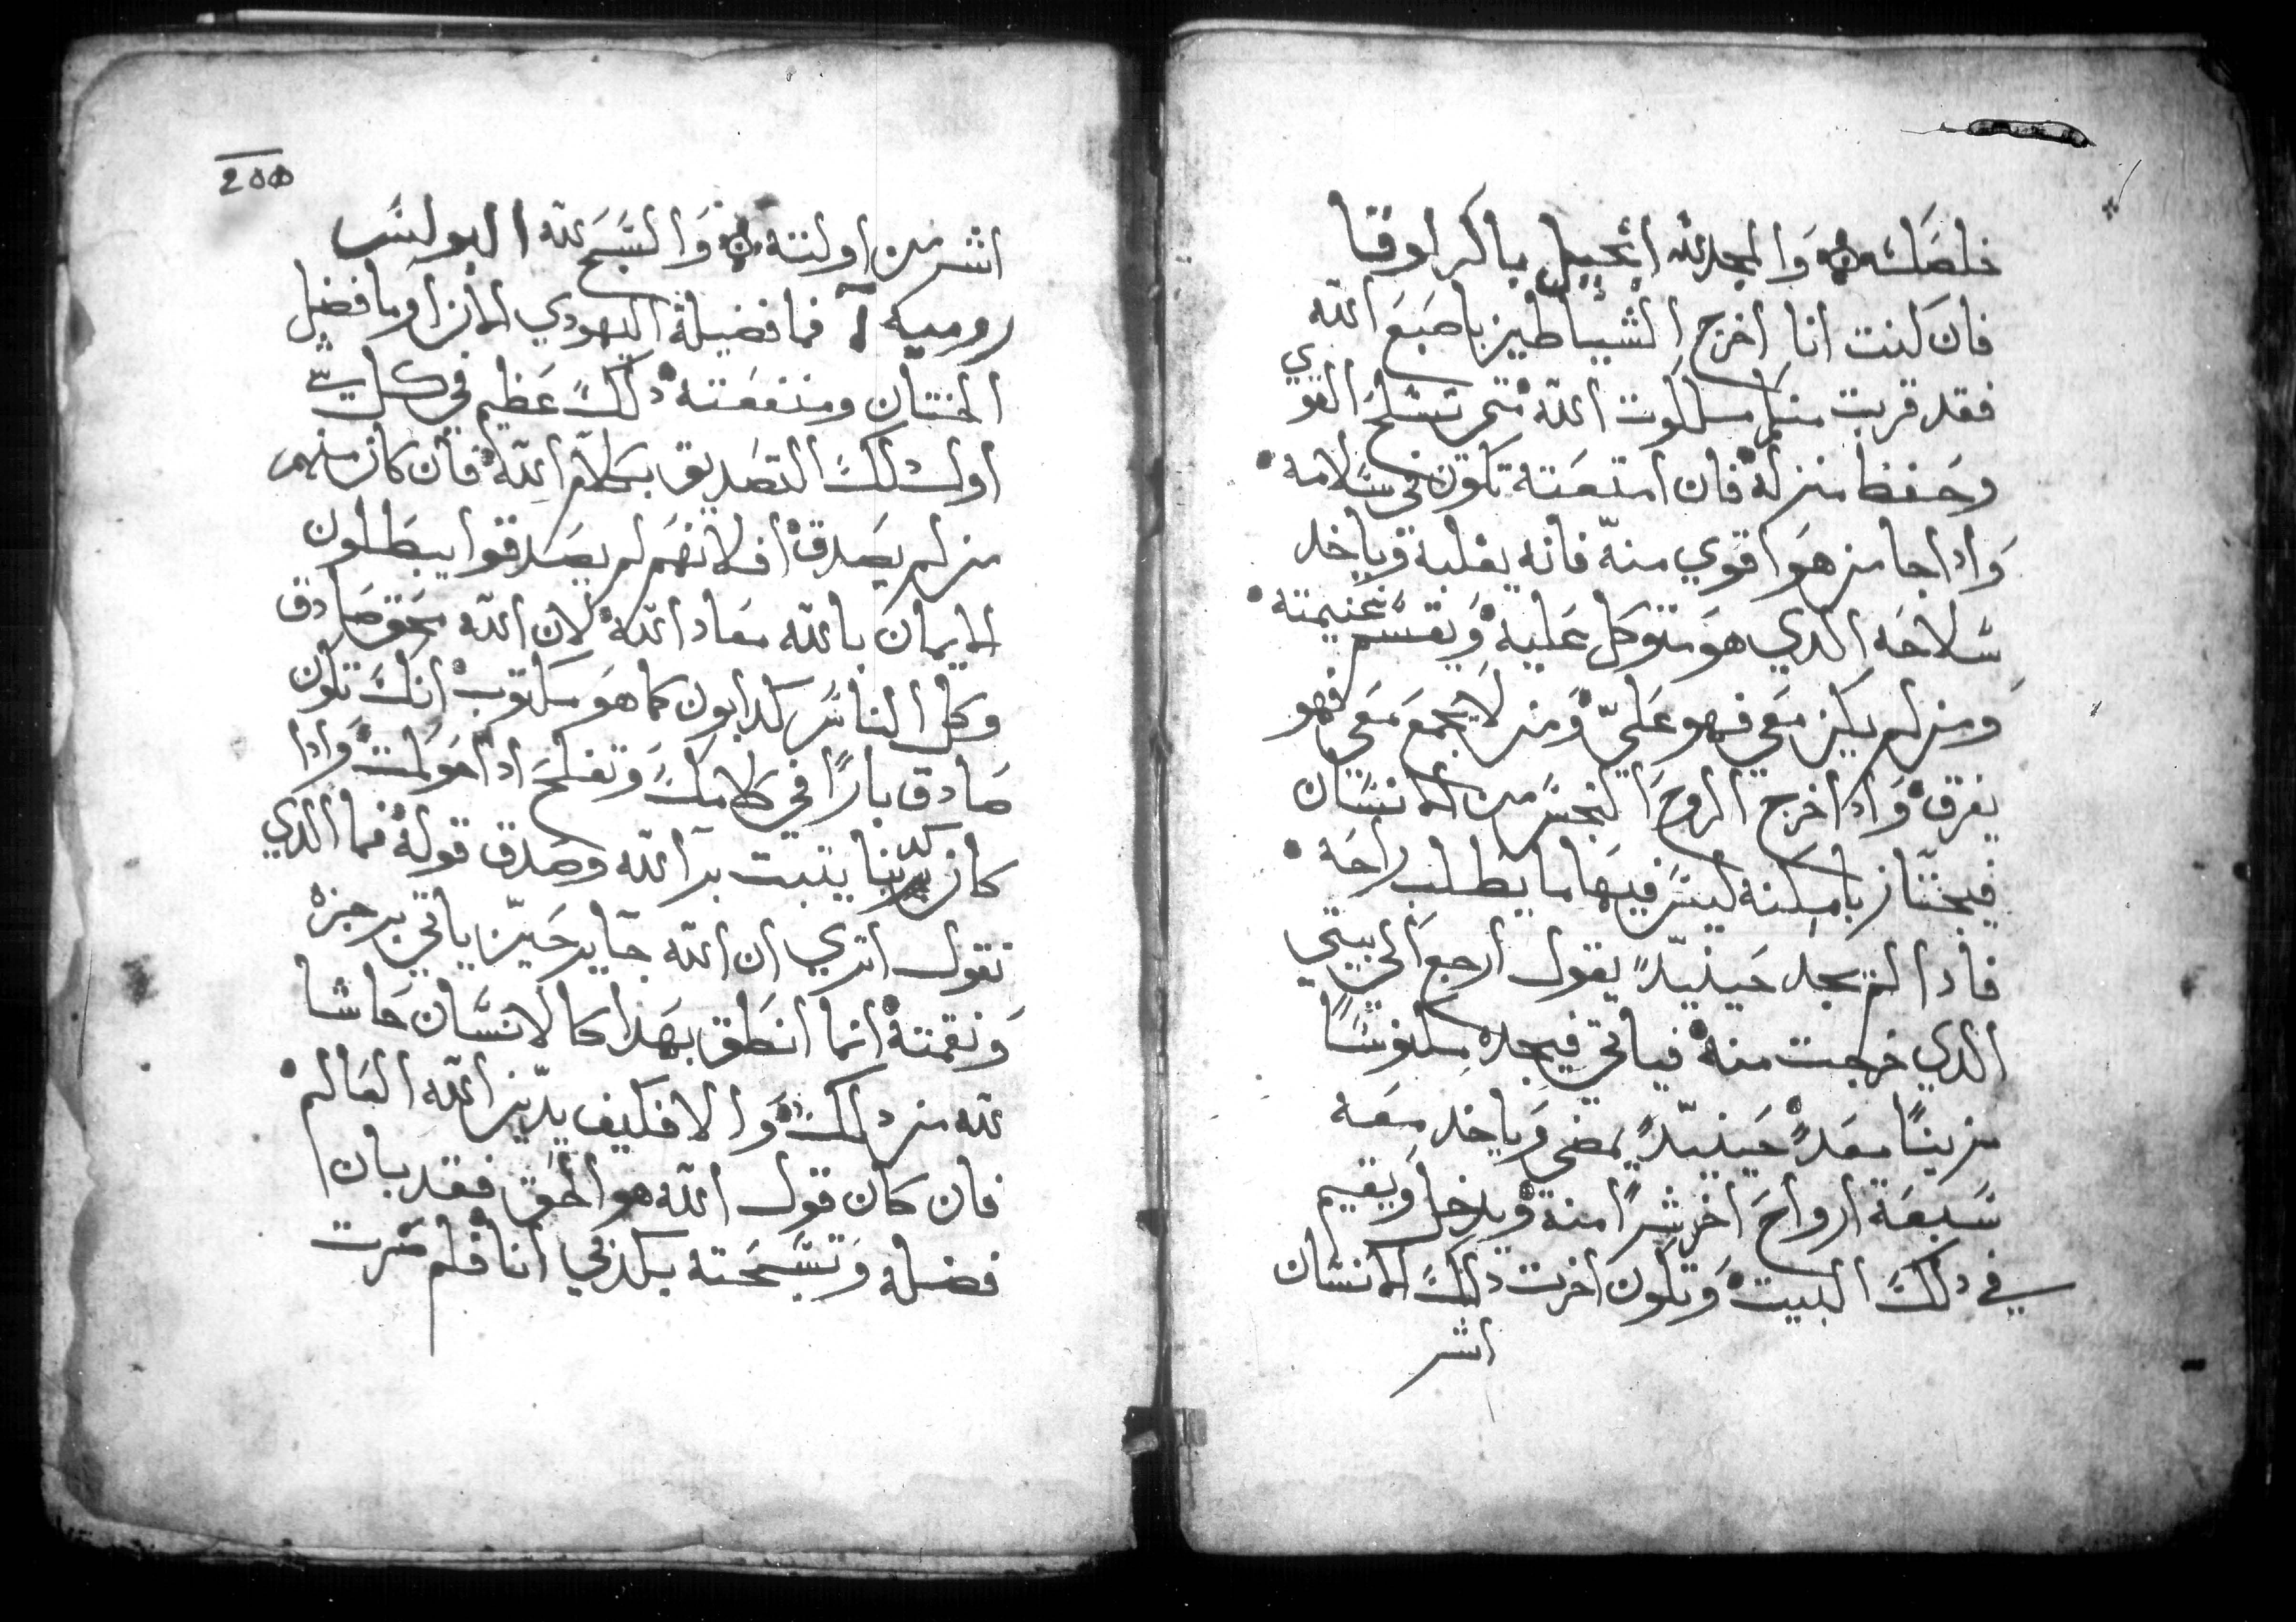 خلصك والمجد لله انجيل باكر لوقا
فان كنت انا اخرج الشياطين باصبع الله
فقد قربت منكم ملكوت الله متى تسلح القوي
وحفظ منزله فان امتعته تكون في سلامه
وادا جا من هو اقوي منه فانه يغلبه وياخد
سلاحه الدي هو متوكل عليه ويقسم غنيمته
ومن لم يكن معي فهو عليّ ومن لا يجمع معي فهو
يفرق وادا خرج الروح النجس من الانسان
فيجتاز بامكنة ليس فيها ما يطلب راحه
فادا لم يجد حينيدً يقول ارجع الى بيتي
الدي خرجت منه فياتي فيجده مكنوسًا
مزينًا معدً حينيدً يمضي وياخد معه
سبعة ارواح اخر شرًا منه ويدخل ويقيم
في دلك البيت وتكون اخرت دلك الانسان
اشر
200
اشر من اولته والسبح لله البولس
روميه فما فضيلة اليهودي الان او ما فضل
الختان ومنفعته دلك عظيم في كل شي
اول دلك التصديق بكلام الله فان كان منهم
من لم يصدق افلانهم لم يصدقوا يبطلون
الايمان بالله معاد الله لان الله محق صادق
وكل الناس كدابون كما هو مكتوب انك تكون
صادق بارًا في كلامك وتفلح ادا حوكمت وادا
كان كدبنا يتبت بر الله وصدق قوله فما الدي
نقول اترى ان الله جاير حين ياتي برجزه
ونقمته انما انطق بهدا كالانسان حاشا
لله من دلك والا فكيف يدين الله العالم
فان كان قول الله هو الحق فقد بان
فضله وتسبحته بكدبي انا فلم صرت